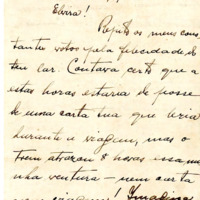 Elvira!
Repito os meus cons
tantes votos pela felicidade do
teu lar. Contava certo que a
estas horas estaria de posse
de uma carta tua que viria
durante a viagem, mas o
trem atrazou 8 horas essa mi
nha ventura – nem carta
! Imagina